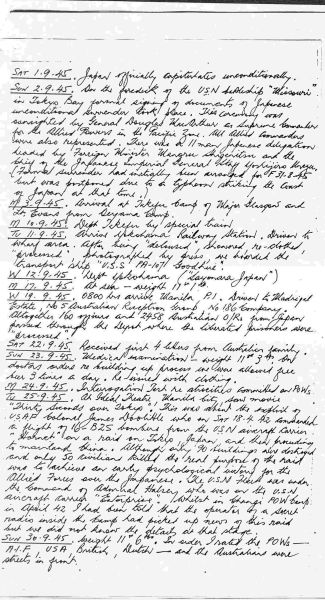 SAT 1.9.45. Japan officially capitulates unconditionally.
SUN 2.9.45. On the foredeck of the USN battleship "Missouri"
in Tokyo Bay formal signing of documents of Japanese
unconditional surrender took place. This ceremony was
by General Douglas MacArthur as Supreme Commander
for the Allied Powers in the Pacific Zone. All Allied Commanders
were also represented. There was a 11 man Japanese delegation
headed by Foreign Minister and the
Chief of the Japanese Imperial General Staff
(Formal surrender had initially been arranged for F 31.8.45
but was postponed due to a typhoon striking the coast
of Japan at that time).
M 3.9.45. Arrival at Camp of Major and
Dr Evans from Camp.
M 10.9.45. Dept by special train
TU 11.9.45. Arrived Yokohama Railway Station. Driven to
wharf area. After being "deloused", showered, re-clothed,
"processed", photographed by press, we boarded the
transport ship "U.S.S PA-107! Goodhue".
W 12.9.45. Dept Yokohama
M 17.9.45. At sea - weight 11st 1lb.
W 19.9.45. 0800 hrs arrive Manila P.I. Driven to
Altogether 160 officers and 2458 Australian O/Rs from Japan
passed through the Depot where the liberated prisoners were
processed.
SAT 22.9.45. Received first 4 letters from Australian family.
SUN 23.9.45. Medical examination - weight 11st 3lb. but
doctors under re building up process in we were allowed free
beer 3 times a day. re-issued with clothing.
M 24.9.45. Interrogation Part re atrocities committed on POWs.
TU 25.9.45. At Ideal Theatre, Manila City, saw movie
"Thirty Seconds over Tokyo". This was about the exploit of
USAF Colonel James Doolittle who on SAT 18.4.42 commanded
a flight of 16 B25 bombers from the U.S.N aircraft carrier
"Hornet" on a raid on Tokyo, Japan, and then proceeding
to mainland China. Although only 90 buildings were destroyed
and only 50 civilians killed the real purpose of the raid
was to achieve an early psychological victory for the
Allied Forces over the Japanese. The U.S.N Fleet was under
the command of Admiral Halsey, who was on the U.S.N
aircraft carrier "Enterprise". Whilst in Changi POW Camp
in April 42 I had been told that the operator of a secret
radio inside the camp had picked up news of this raid
but we did not know the details at that stage.
SUN 30.9.45. Weight 11st 6lbs. In order I rated the POWs -
A.I.F. USA, British, Dutch - and the Australians were
streets in front.